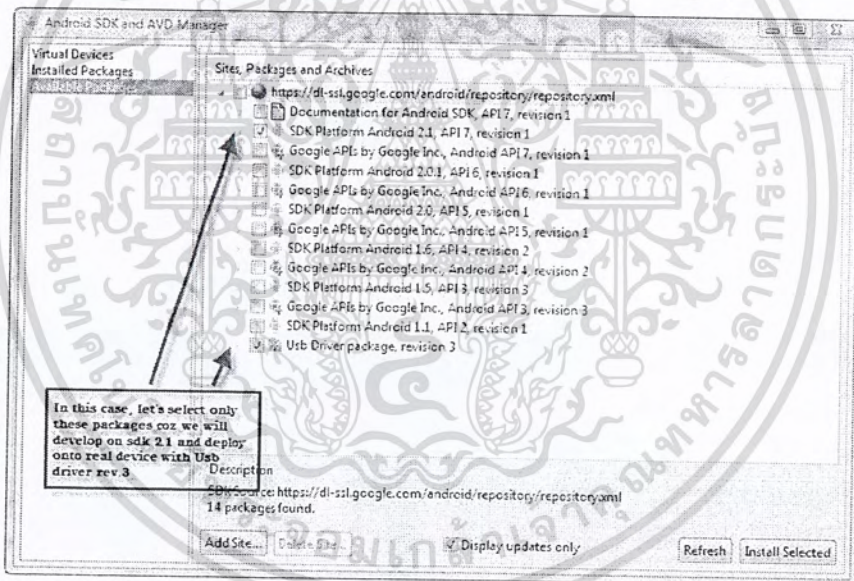 Android SDK and AVD Manager
Virtual Devices
Installed Packages
Available Packages
Sites, Packages and Archives
https://dl-ssl.google.com/android/repository/repository.xml
Documentation for Android SDK, API 7, revision 1
SDK Platform Android 2.1, API 7, revision 1
Google APIs by Google Inc., Android API 7, revision 1
SDK Platform Android 2.0.1, API 6, revision 1
Google APIs by Google Inc., Android API 6, revision 1
SDK Platform Android 2.0, API 5, revision 1
Google APIs by Google Inc., Android API 5, revision 1
SDK Platform Android 1.6, API 4, revision 2
Google APIs by Google Inc., Android API 4, revision 2
SDK Platform Android 1.5, API 3, revision 3
Google APIs by Google Inc., Android API 3, revision 3
SDK Platform Android 1.1, API 2, revision 1
Usb Driver package, revision 3
In this case, let's select only
these packages coz we will
develop on sdk 2.1 and deploy
onto real device with Usb
driver rev.3
Description
SDK Source: https://dl-ssl.google.com/android/repository/repository.xml
14 packages found.
Add Site...
Delete Site...
Display updates only
Refresh
Install Selected